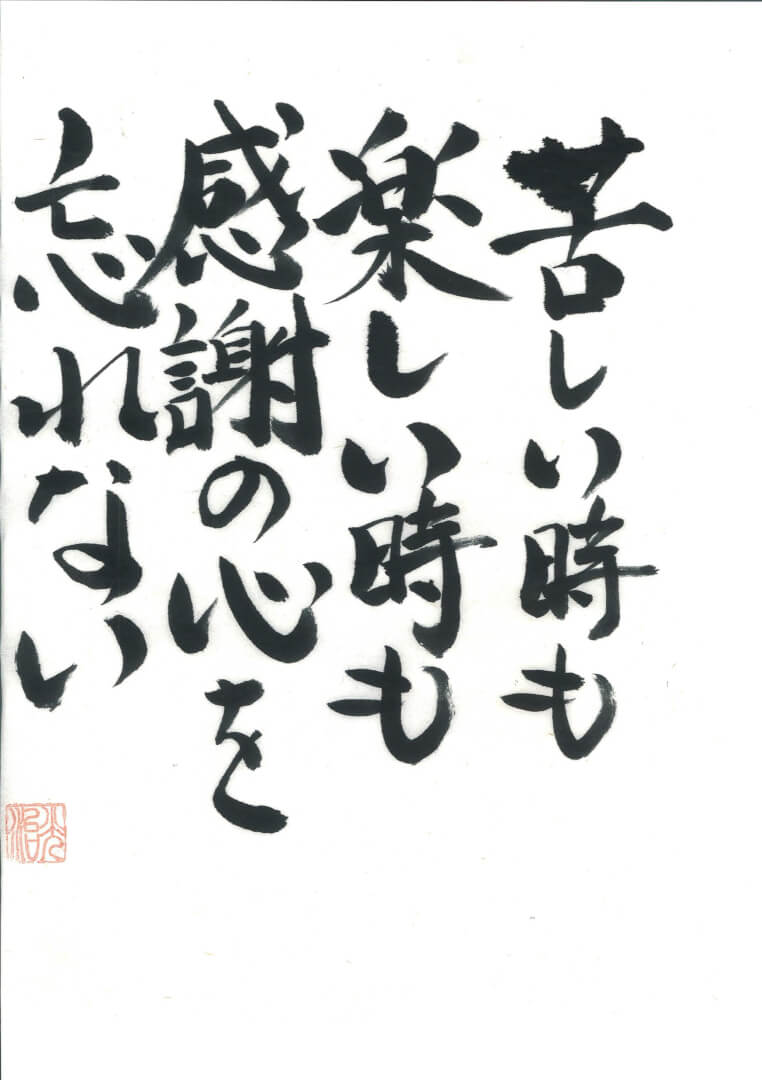 苦しい時も
楽しい時も
感謝の心を
忘れない